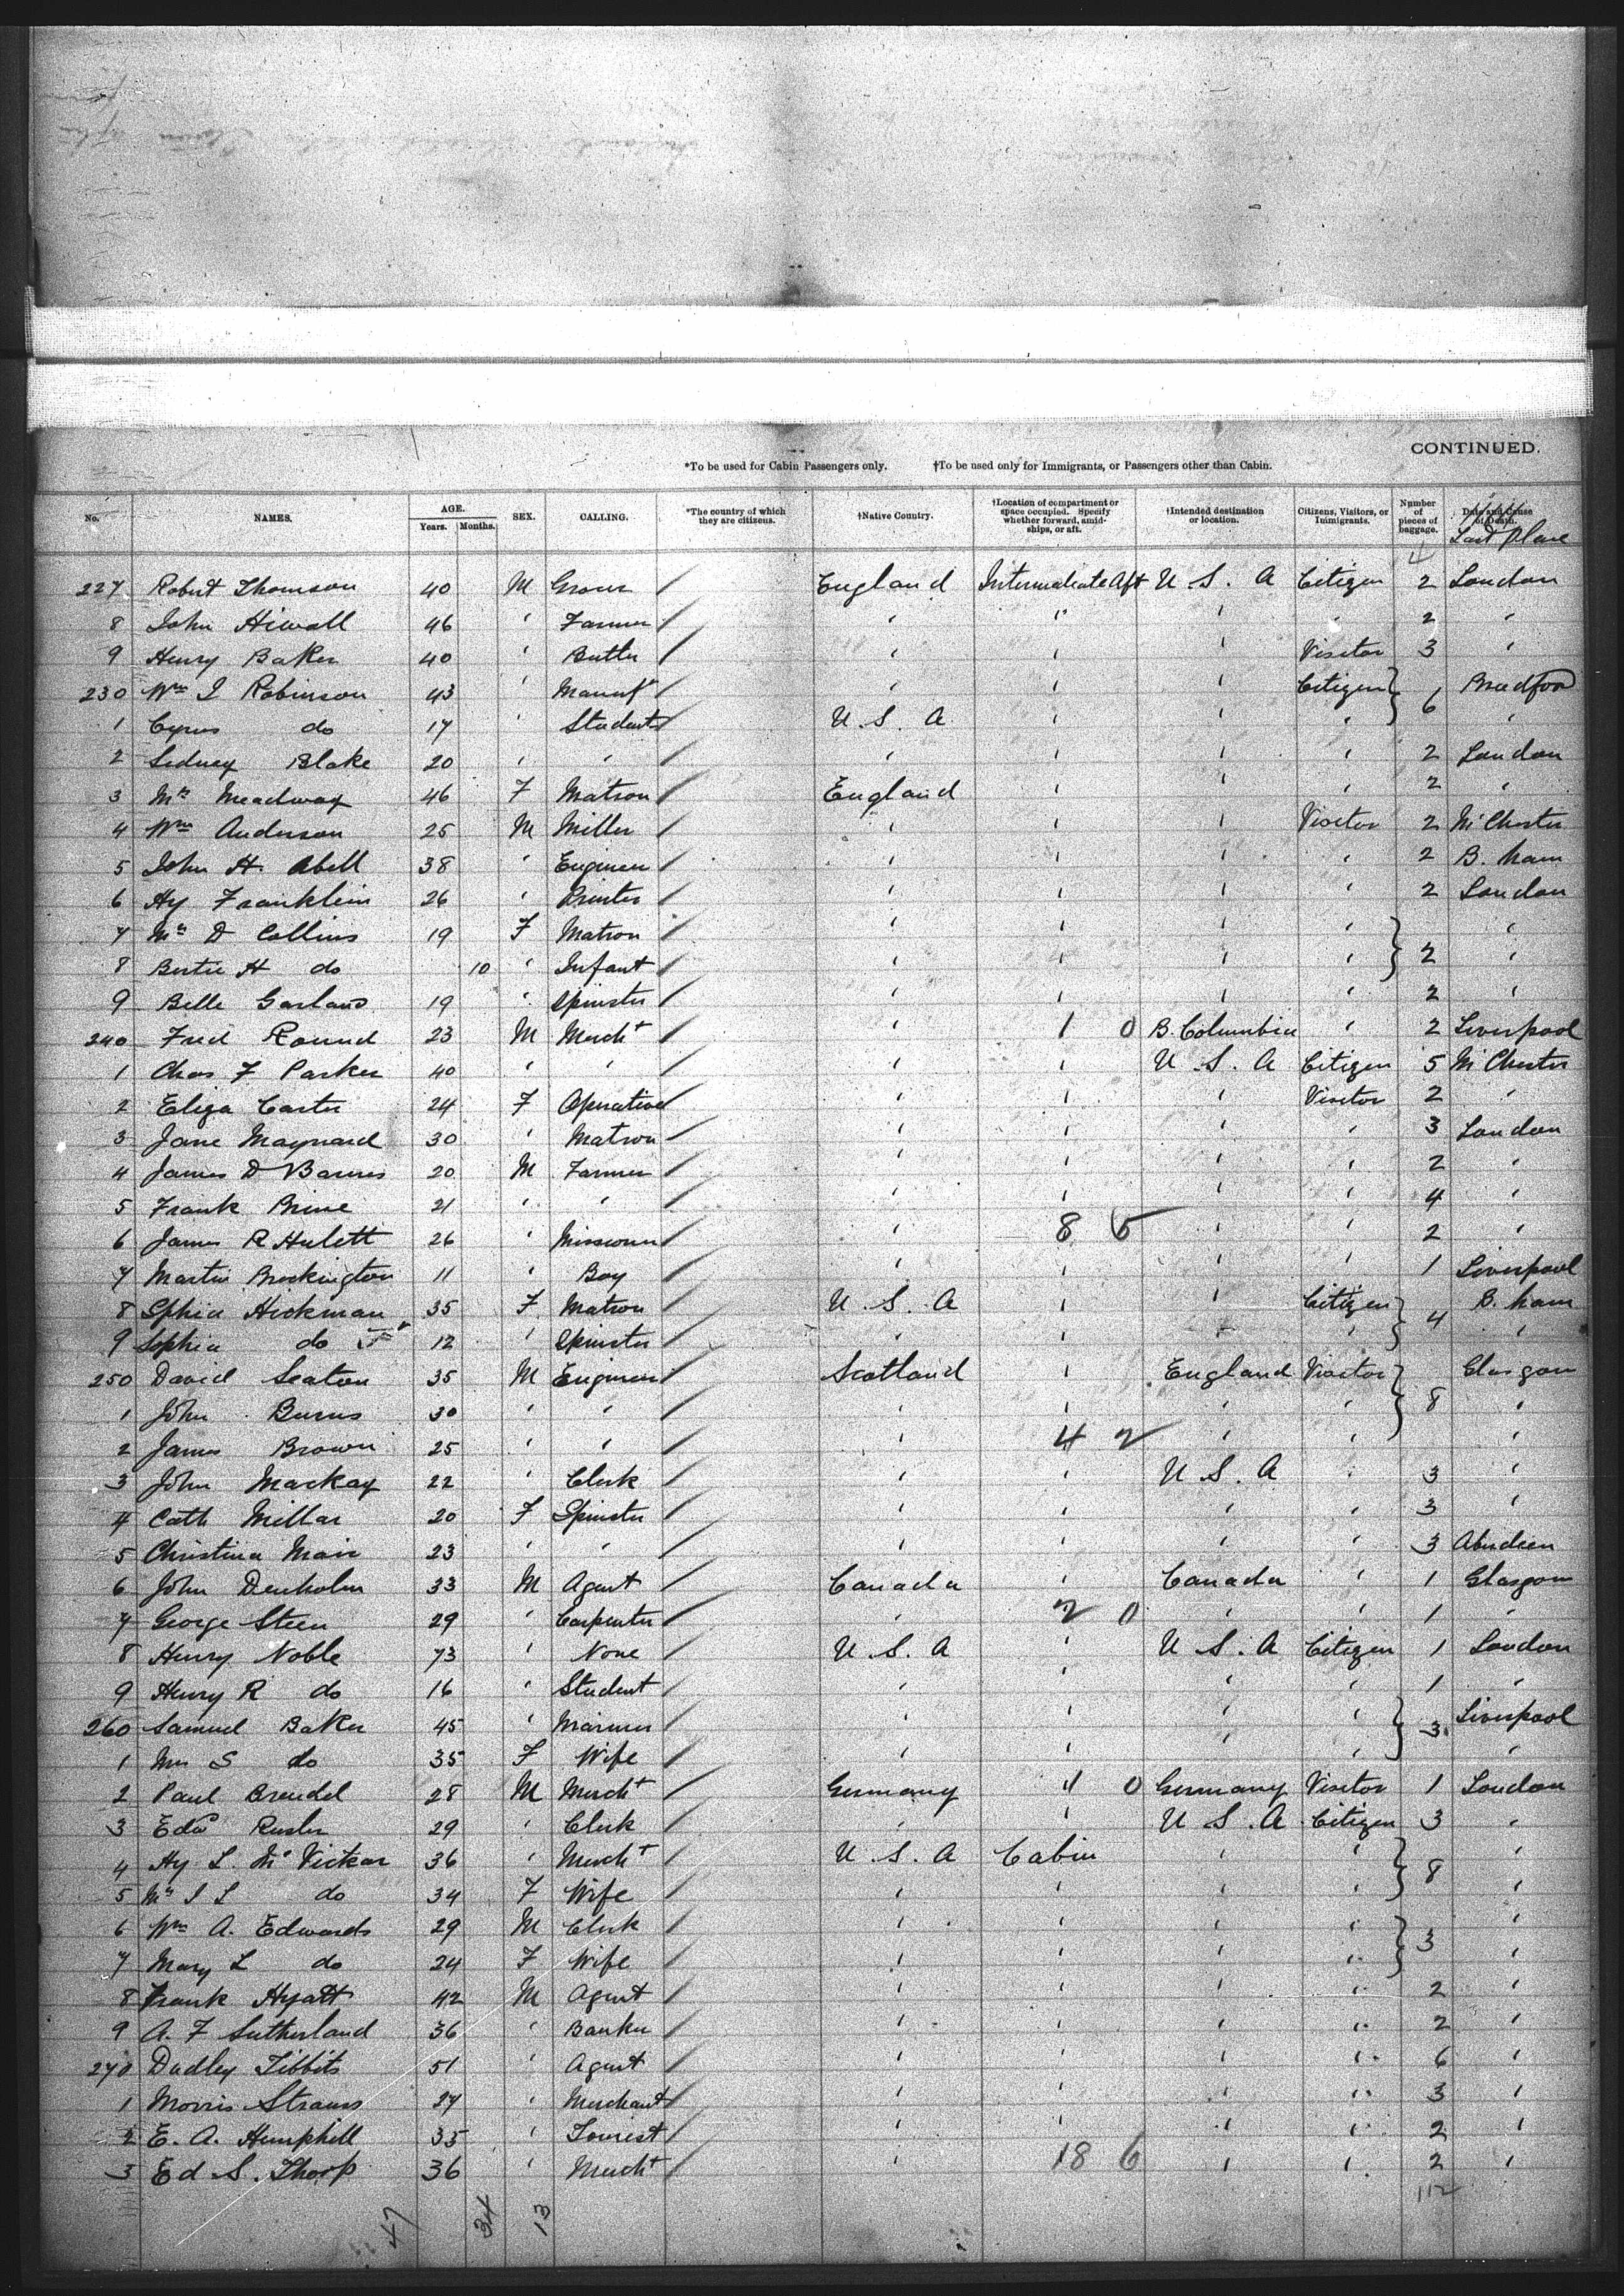 CONTINUED.
*To be used for Cabin Passengers only. †To be used only for Immigrants, or Passengers other than Cabin.
No. NAMES. AGE. Years. Months. SEX. CALLING. *The country of which they are citizens. †Native Country. †Location of compartment or space occupied. Specify whether forward, amidships, or aft. †Intended destination or location. Citizens, Visitors, or Immigrants. Number of pieces of baggage. Date and Cause of Death. Last place
227 Robert Thomson 40 M Grocer / England Intermediate Aft U. S. A Citizen 2 London
8 John Hiwall 46 " Farmer / " " " " 2 "
9 Henry Baker 40 " Butler / " " " Visitor 3 "
230 Wm I Robinson 43 " Manuf / " " " Citizen } 6 Bradford
1 Cyrus do 17 " Student / U. S. A " " " "
2 Sidney Blake 20 " " / " " " " 2 London
3 Mrs Meadway 46 F Matron / England " " " 2 "
4 Wm Anderson 25 M Miller / " " " Visitor 2 M Chester
5 John H. Abell 38 " Engineer / " " " " 2 B. ham
6 Hy Franklin 26 " Printer / " " " " 2 London
7 Mrs D Collins 19 F Matron / " " " " } 2 "
8 Bertie H do 10 " Infant / " " " " "
9 Belle Garland 19 " Spinster / " " " " 2 "
240 Fred Round 23 M Mercht / " 1 0 B. Columbia " 2 Liverpool
1 Chas F Parker 40 " " / " " U. S. A Citizen 5 M Chester
2 Eliza Carter 24 F Operative / " " " Visitor 2 "
3 Jane Maynard 30 " Matron / " " " " 3 London
4 James D Barnes 20 M Farmer / " " " " 2 "
5 Frank Brine 21 " " / " " " " 4 "
6 James R Hulett 26 " Missoner / " 8 5 " " 2 "
7 Martin Brockington 11 " Boy / " " " " 1 Liverpool
8 Sphia Hickman 35 F Matron / U. S. A " " Citizen } 4 B. ham
9 Sophia do 12 " Spinster / " " " " "
250 David Seaton 35 M Engineer / Scotland " England Visitor } 8 Glasgow
1 John Burns 30 " " / " " " " "
2 James Brown 25 " " / " 4 2 " " "
3 John Mackay 22 " Clerk / " " U. S. A " 3 "
4 Cath Millar 20 F Spinster / " " " " 3 "
5 Christina Mair 23 " " / " " " " 3 Aberdeen
6 John Denholm 33 M Agent / Canada " Canada " 1 Glasgow
7 George Steen 29 " Carpenter / " 2 0 " " 1 "
8 Henry Noble 73 " None / U. S. A " U. S. A Citizen 1 London
9 Henry R do 16 " Student / " " " " 1 "
260 Samuel Baker 45 " Mariner / " " " " } 3 Liverpool
1 Mrs S do 35 F Wife / " " " "
2 Paul Brendel 28 M Mercht / Germany 1 0 Germany Visitor 1 London
3 Edwd 29 " Clerk / " " U. S. A Citizen 3 "
4 Hy L. McVickar 36 " Mercht / U. S. A Cabin " " } 8 "
5 Mrs do 34 F Wife / " " " " "
6 Wm A. Edwards 29 M Clerk / " " " " } 3 "
7 Mary L do 24 F Wife / " " " " "
8 Frank Hyatt 42 M Agent / " " " " 2 "
9 A. F Sutherland 36 " Banker / " " " " 2 "
270 Dudley Tibbits 51 " Agent / " " " " 6 "
1 Morris Strauss 27 " Merchant / " " " " 3 "
2 E. A. Hemphill 35 " Tourist / " " " " 2 "
3 Ed S. Thorp 36 " Mercht / " 18 6 " " 2 "
112
47 34 13